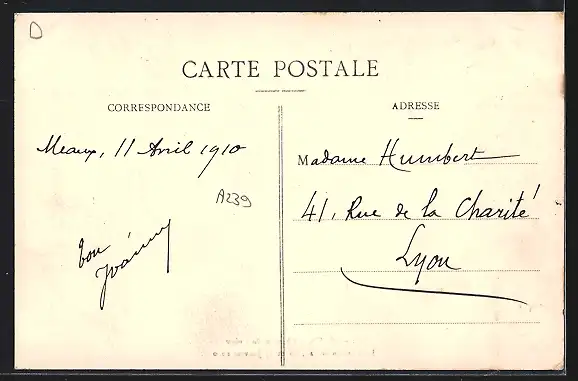 D
CARTE POSTALE
CORRESPONDANCE
ADRESSE
Meaux, 11 Avril 1910
A239
Madame Humbert
41, Rue de la Charité
Lyon